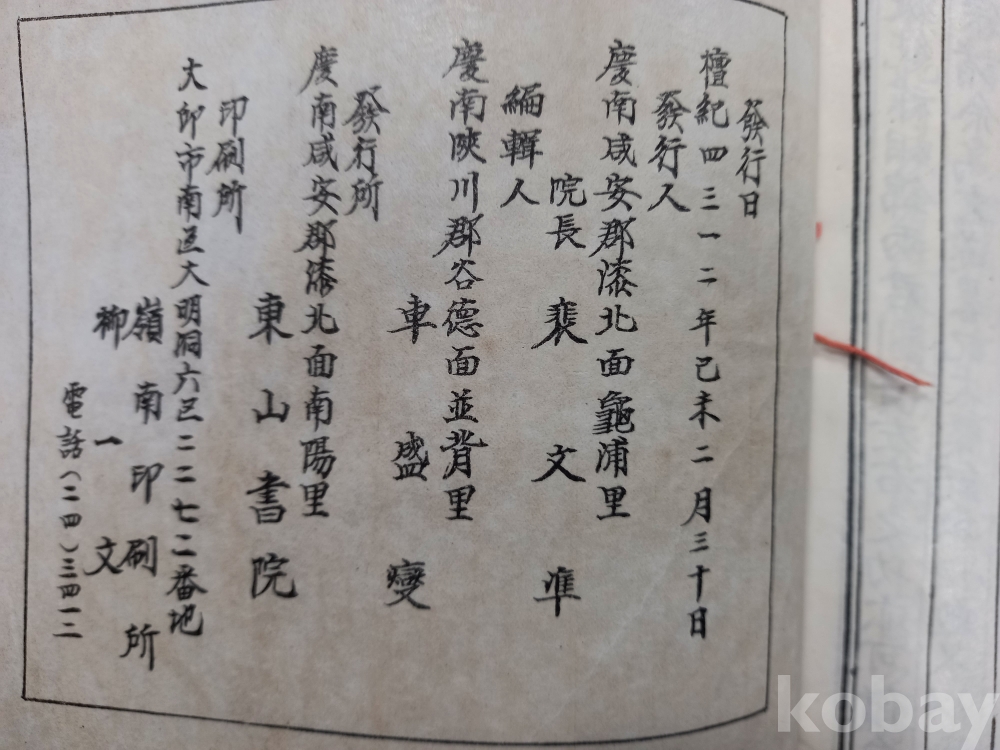 發行日
檀紀四三一二年己未二月三十日
發行人
慶南咸安郡漆北面龜浦里
院長 裵文準
編輯人
慶南陜川郡谷德面並背里
車盛燮
發行所
慶南咸安郡漆北面南陽里
東山書院
印刷所
大邱市南區大明洞六区二二七二番地
嶺南印刷所
柳一文
電話(二四)三四一二
kobay